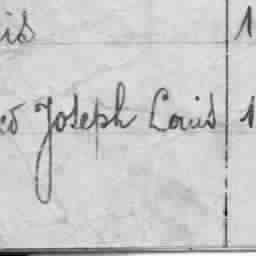 is 1
eo Joseph Louis 1